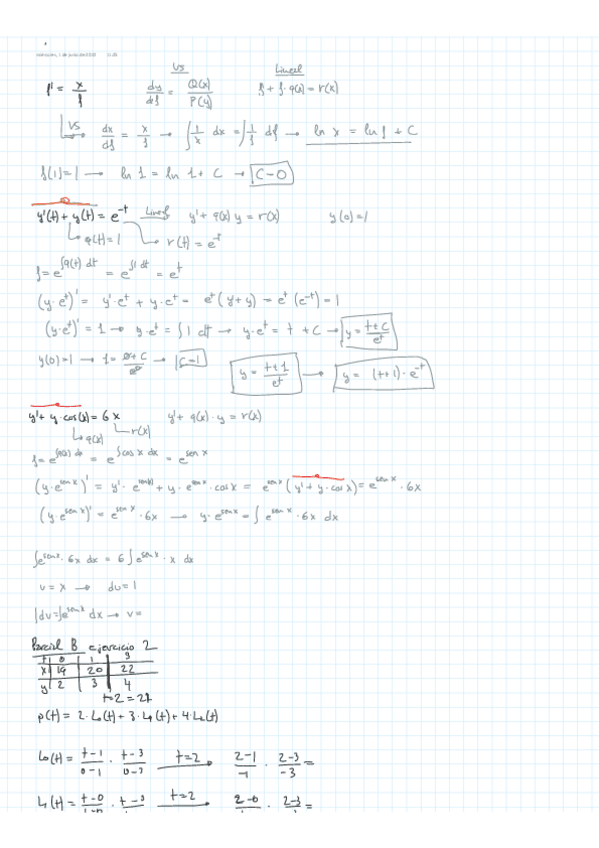 VS Lineal
f' = x/f dy/df = Q(x)/P(y) f + f·q(x) = r(x)
VS dx/df = x/f → ∫ 1/x dx = ∫ 1/f df → ln x = ln f + C
f(1)=1 → ln 1 = ln 1 + C → C=0
y'(t) + y(t) = e^-t Lineal y' + q(x) y = r(x) y(0)=1
q(t)=1 r(t) = e^-t
f = e^∫q(t) dt = e^∫1 dt = e^t
(y·e^t)' = y'·e^t + y·e^t = e^t (y'+y) = e^t (e^-t) = 1
(y·e^t)' = 1 → y·e^t = ∫ 1 dt → y·e^t = t + C → y = t+C/e^t
y(0)=1 → 1 = 0+C/e^0 → C=1 y = t+1/e^t → y = (t+1)·e^-t
y' + y·cos(x) = 6x y' + q(x)·y = r(x)
q(x) r(x)
f = e^∫q(x) dx = e^∫cos x dx = e^sen x
(y·e^sen x)' = y'·e^sen(x) + y·e^sen x·cos x = e^sen x (y' + y·cos x) = e^sen x · 6x
(y·e^sen x)' = e^sen x · 6x → y·e^sen x = ∫ e^sen x · 6x dx
∫e^sen x · 6x dx = 6 ∫ e^sen x · x dx
u = x → du = 1
∫dv = ∫e^sen x dx → v =
Parcial B ejercicio 2
t 0 1 3
x 19 20 22
y 2 3 4
t=2 = 21
p(t) = 2·L0(t) + 3·L1(t) + 4·L2(t)
L0(t) = t-1/0-1 · t-3/0-3 t=2 2-1/-1 · 2-3/-3 =
L1(t) = t-0/1-0 · t-3 t=2 2-0 · 2-3 =